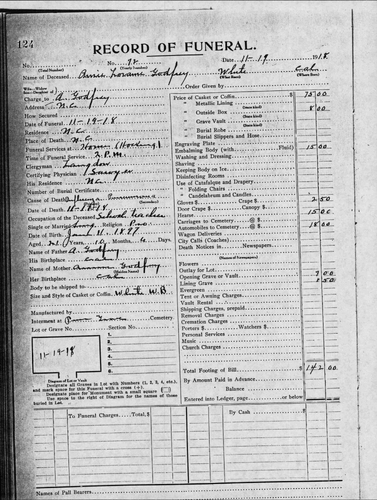 124
RECORD OF FUNERAL.
No. (Total Number) No. 92 (Yearly Number) Date 11-19 1918
Name of Deceased Annie Lorame Godfrey White (What Race) Cal. (Where Born)
Charge to A. Godfrey Order Given by
Address N.C.
How Secured
Date of Funeral 11-19-18
Residence N.C.
Place of Death N.C.
Funeral Services at Home
Time of Funeral Service 2 P.M.
Clergyman Langdon
Certifying Physician Sawyer
His Residence N.C.
Number of Burial Certificate
Cause of Death Influenza Pneumonia
Date of Death 11-18-18
Occupation of the Deceased School Teacher
Single or Married Religion
Date of Birth Jan. 1897
Aged 21 Years, 10 Months, 6 Days
Name of Father A. Godfrey
His Birthplace
Name of Mother Godfrey (Maiden Name)
Her Birthplace Cal.
Body to be shipped to
Size and Style of Casket or Coffin White W.B.
Manufactured by
Interment at Pine Grove Cemetery
Lot or Grave No. Section No.
11-19-18
1.
2.
3.
4.
5.
6.
Diagram of Lot or Vault
Designate all Graves in Lot with Numbers (1, 2, 3, 4, etc.), and mark space for this Funeral with a cross (+).
Designate place for Monument with a small square
Use space to the right of Diagram for the names of those buried in Lot.
Price of Casket or Coffin $ 75 00
" Metallic Lining
" Outside Box 8 00
" Grave Vault
" Burial Robe
" Burial Slippers and Hose
Engraving Plate
Embalming Body (with Fluid) 15 00
Washing and Dressing
Shaving
Keeping Body on Ice
Disinfecting Rooms
Use of Catafalque and Drapery
" Folding Chairs
" Candelabrum and Candles
Gloves $ Crape $ 2 50
Door Crape $ Canopy $
Hearse 15 00
Carriages to Cemetery @ $
Automobiles to Cemetery @ $ 18 00
Wagon Deliveries
City Calls (Coaches)
Death Notices in Newspapers
Flowers
Outlay for Lot
Opening Grave or Vault 7 00
Lining Grave 1 50
Evergreen
Tent or Awning Charges
Vault Rental
Shipping Charges, prepaid
Removal Charges
Cremation Charges
Porters $ Watchers $
Personal Services
Music
Church Charges
Total Footing of Bill $ 142 00
By Amount Paid in Advance
Balance
Entered into Ledger, page or below
To Funeral Charges, Total $ By Cash $
Names of Pall Bearers